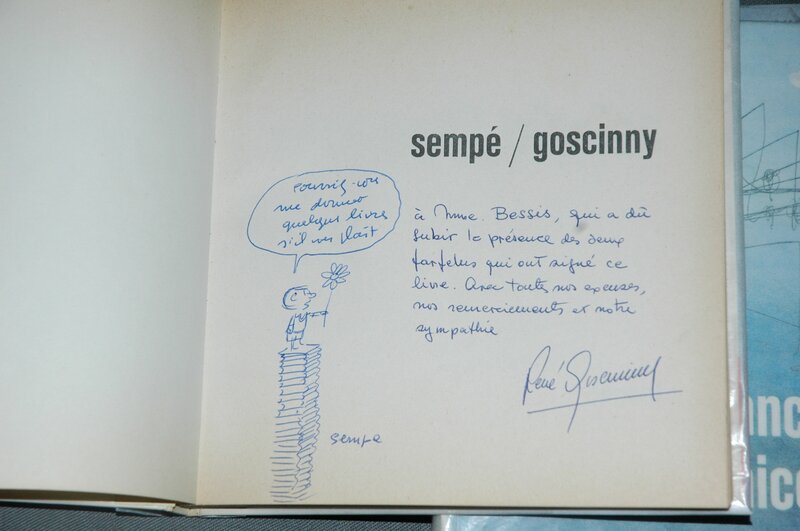 sempé / goscinny
pouvez-vous
me donner
quelques livres
s'il vous plaît
à Mme. Bessis, qui a dû
subir la présence des deux
farfelus qui ont signé ce
livre. Avec toutes nos excuses,
nos remerciements et notre
sympathie
René Goscinny
sempé
anc
ico